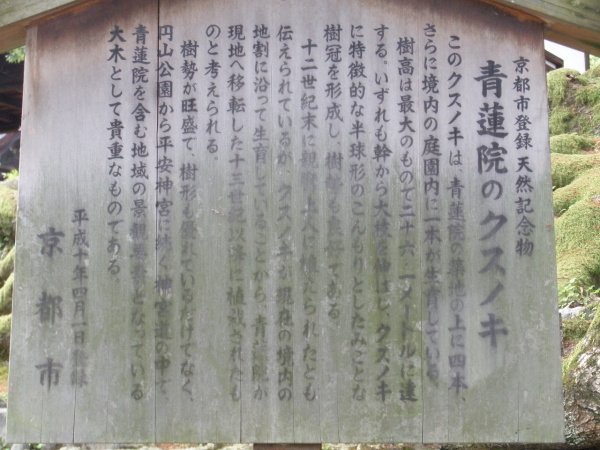 京都市登録天然記念物
青蓮院のクスノキ
このクスノキは、青蓮院の築地の上に四本、
さらに境内の庭園内に一本が生育している。
樹高は最大のもので二十六・一メートルに達
する。いずれも幹から大枝を伸ばし、クスノキ
に特徴的な半球形のこんもりとしたみごとな
樹冠を形成し、樹勢も である。
十二世紀末に親鸞上人が植えられたとも
伝えられているが、クスノキが現在の境内の
地割に沿って生育していることから、青蓮院が
現地へ移転した十三世紀以降に植栽されたも
のと考えられる。
樹勢が旺盛で、樹形も優れているだけでなく、
円山公園から平安神宮に続く神宮道の中で、
青蓮院を含む地域の景観 となっている
大木として貴重なものである。
平成十年四月一日登録
京都市